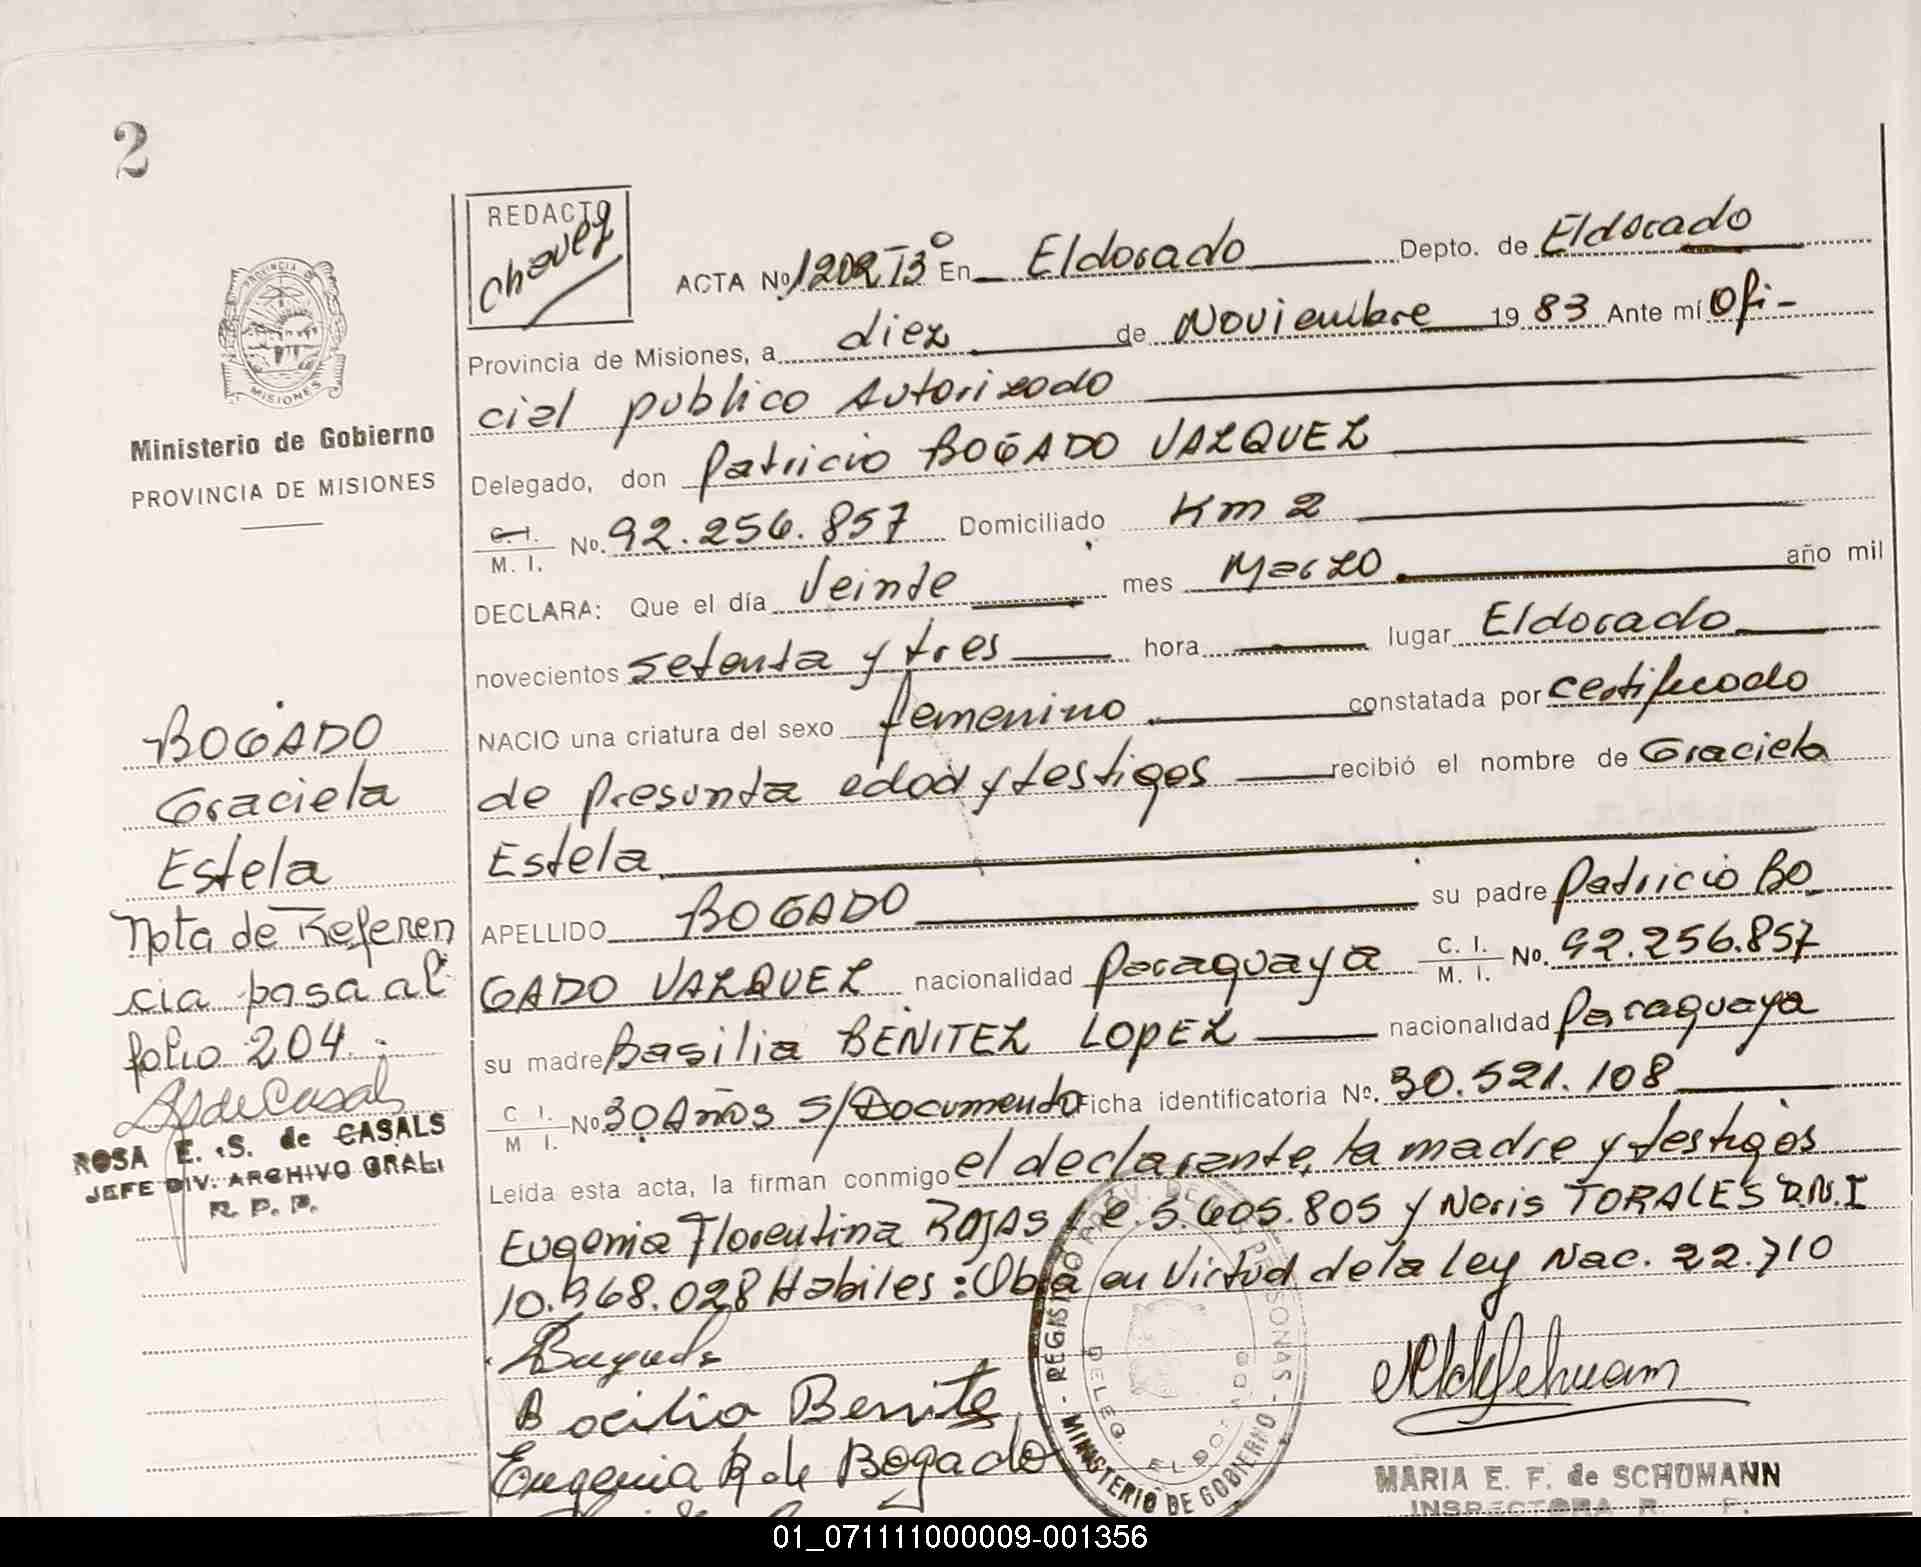 2
REDACTO
Chavez
ACTA No 1202 T3º En Eldorado Depto. de Eldorado
Provincia de Misiones, a diez de Noviembre 1983 Ante mí Ofi-
cial publico Autorizado
Delegado, don Patricio BOGADO VAZQUEZ
C. I.
M. I. No. 92.256.857 Domiciliado Km 2
DECLARA: Que el día Veinte mes Marzo año mil
novecientos setenta y tres hora lugar Eldorado
NACIO una criatura del sexo femenino constatada por certificado
de presunta edad y testigos recibió el nombre de Graciela
Estela
APELLIDO BOGADO su padre Patricio BO
GADO VAZQUEZ nacionalidad Paraguaya C. I. M. I. No. 92.256.857
su madre Basilia BENITEZ LOPEZ nacionalidad Paraguaya
C. I. M. I. No 30 Años S/Documento Ficha identificatoria No. 30.521.108
Leída esta acta, la firman conmigo el declarante, la madre y testigos
Eugenia Florentina ROJAS L.e. 5.605.805 y Neris TORALES D.N.I
10.968.028 Habiles: Obra en Virtud de la ley Nac. 22.710
Eugenia R de Bogado
PROVINCIA DE
MISIONES
Ministerio de Gobierno
PROVINCIA DE MISIONES
BOGADO
Graciela
Estela
Nota de Referen
cia pasa al
folio 204.
ROSA E. S. de CASALS
JEFE DIV. ARCHIVO GRAL.
R. P. P.
REGISTRO PROV. DE LAS PERSONAS
MINISTERIO DE GOBIERNO
DELEG. ELDORADO
MARIA E. F. de SCHUMANN
INSPECTORA R. P.
01_071111000009-001356